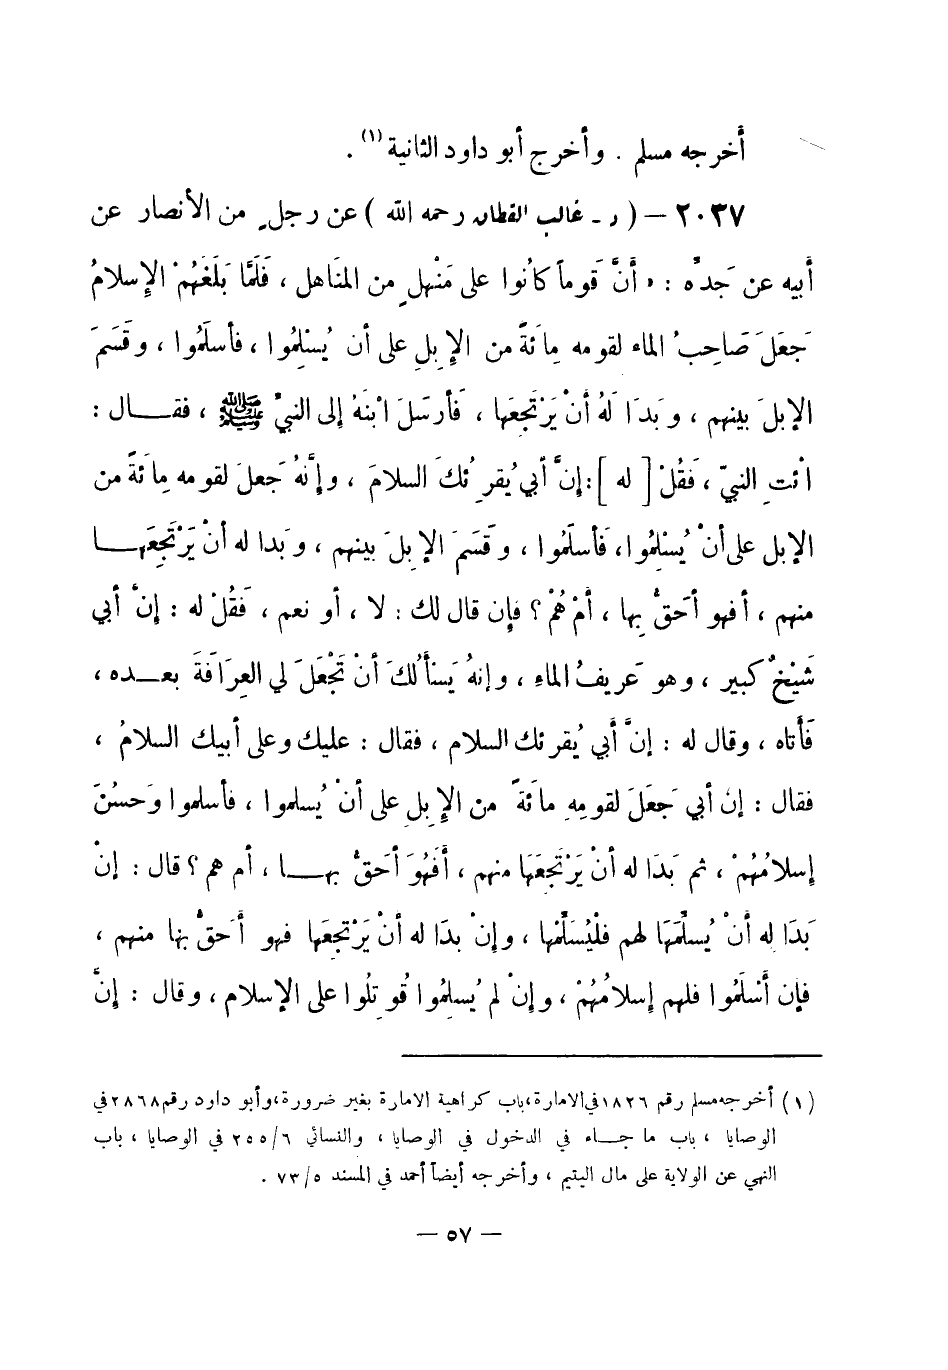 أخرجه مسلم . وأخرج أبو داود الثانية (١) .
٢٠٣٧ – ( ر ـ غالب القطان رحمه الله ) عن رجلٍ من الأنصار عن
أبيه عن جَدِّه : « أنَّ قَوماً كانُوا على مَنْهلٍ من المنَاهل ، فَلَمَّا بَلَغَهُمْ الإِسلامُ
جَعَلَ صَاحِبُ الماء لقومه مِائَةً من الإِبلِ على أن يُسْلِمُوا ، فأسلَمُوا ، وقَسَمَ
الإبلَ بينهم ، وبَدَا لَهُ أنْ يَرْتَجِعَها ، فَأرسَلَ ابْنَهُ إلى النبيِّ ﷺ ، فقـــال :
ائتِ النبيّ ، فَقُلْ [ له ] : إنَّ أبي يُقرِئكَ السلامَ ، وإنَّهُ جَعلَ لقومه مِائَةً من
الإبل على أنْ يُسْلِمُوا، فَأسلَمُوا ، وقَسَمَ الإبلَ بينهم ، وبَدا له أنْ يَرْتَجِعَهــا
منهم ، أفهو أحَقُّ بِها ، أمْ هُمْ ؟ فإن قال لك : لا ، أو نعم ، فَقُلْ له : إنَّ أبي
شَيْخٌ كبير ، وهو عَريفُ الماءِ ، وإنهُ يَسْأَلُكَ أنْ تَجْعَلَ لي العِرَافَةَ بعــده ،
فَأتاه ، وقال له : إنَّ أَبي يُقرئك السلام ، فقال : عليك وعلى أبيك السلامُ ،
فقال : إن أبي جَعَلَ لقومِهِ مائَةً من الإِبلِ على أنْ يُسلموا ، فأسلموا وَحسُنَ
إسلامُهُمْ ، ثم بَدَا له أنْ يَرْتَجِعَهَا منهم ، أَفَهُوَ أحَقُّ بهـــا ، أم هم ؟ قال : إنْ
بَدَا له أنْ يُسلِّمَهَا لهم فلْيُسَلِّمْها ، وإنْ بدَا له أنْ يَرْتجعَها فهو أَحَقُّ بها منهم ،
فإن أَسْلَمُوا فلهم إسلامُهُمْ ، وإنْ لم يُسلِمُوا قُوتِلُوا على الإسلام ، وقال : إنَّ
(١) أخرجه مسلم رقم ١٨٢٦ في الامارة، باب كراهية الامارة بغير ضرورة، وأبو داود رقم ٢٨٦٨ في
الوصايا ، باب ما جـــاء في الدخول في الوصايا ، والنسائي ٢٥٥/٦ في الوصايا ، باب
النهي عن الولاية على مال اليتيم ، وأخرجه أيضاً أحمد في المسند ٧٣/٥ .
— ٥٧ —